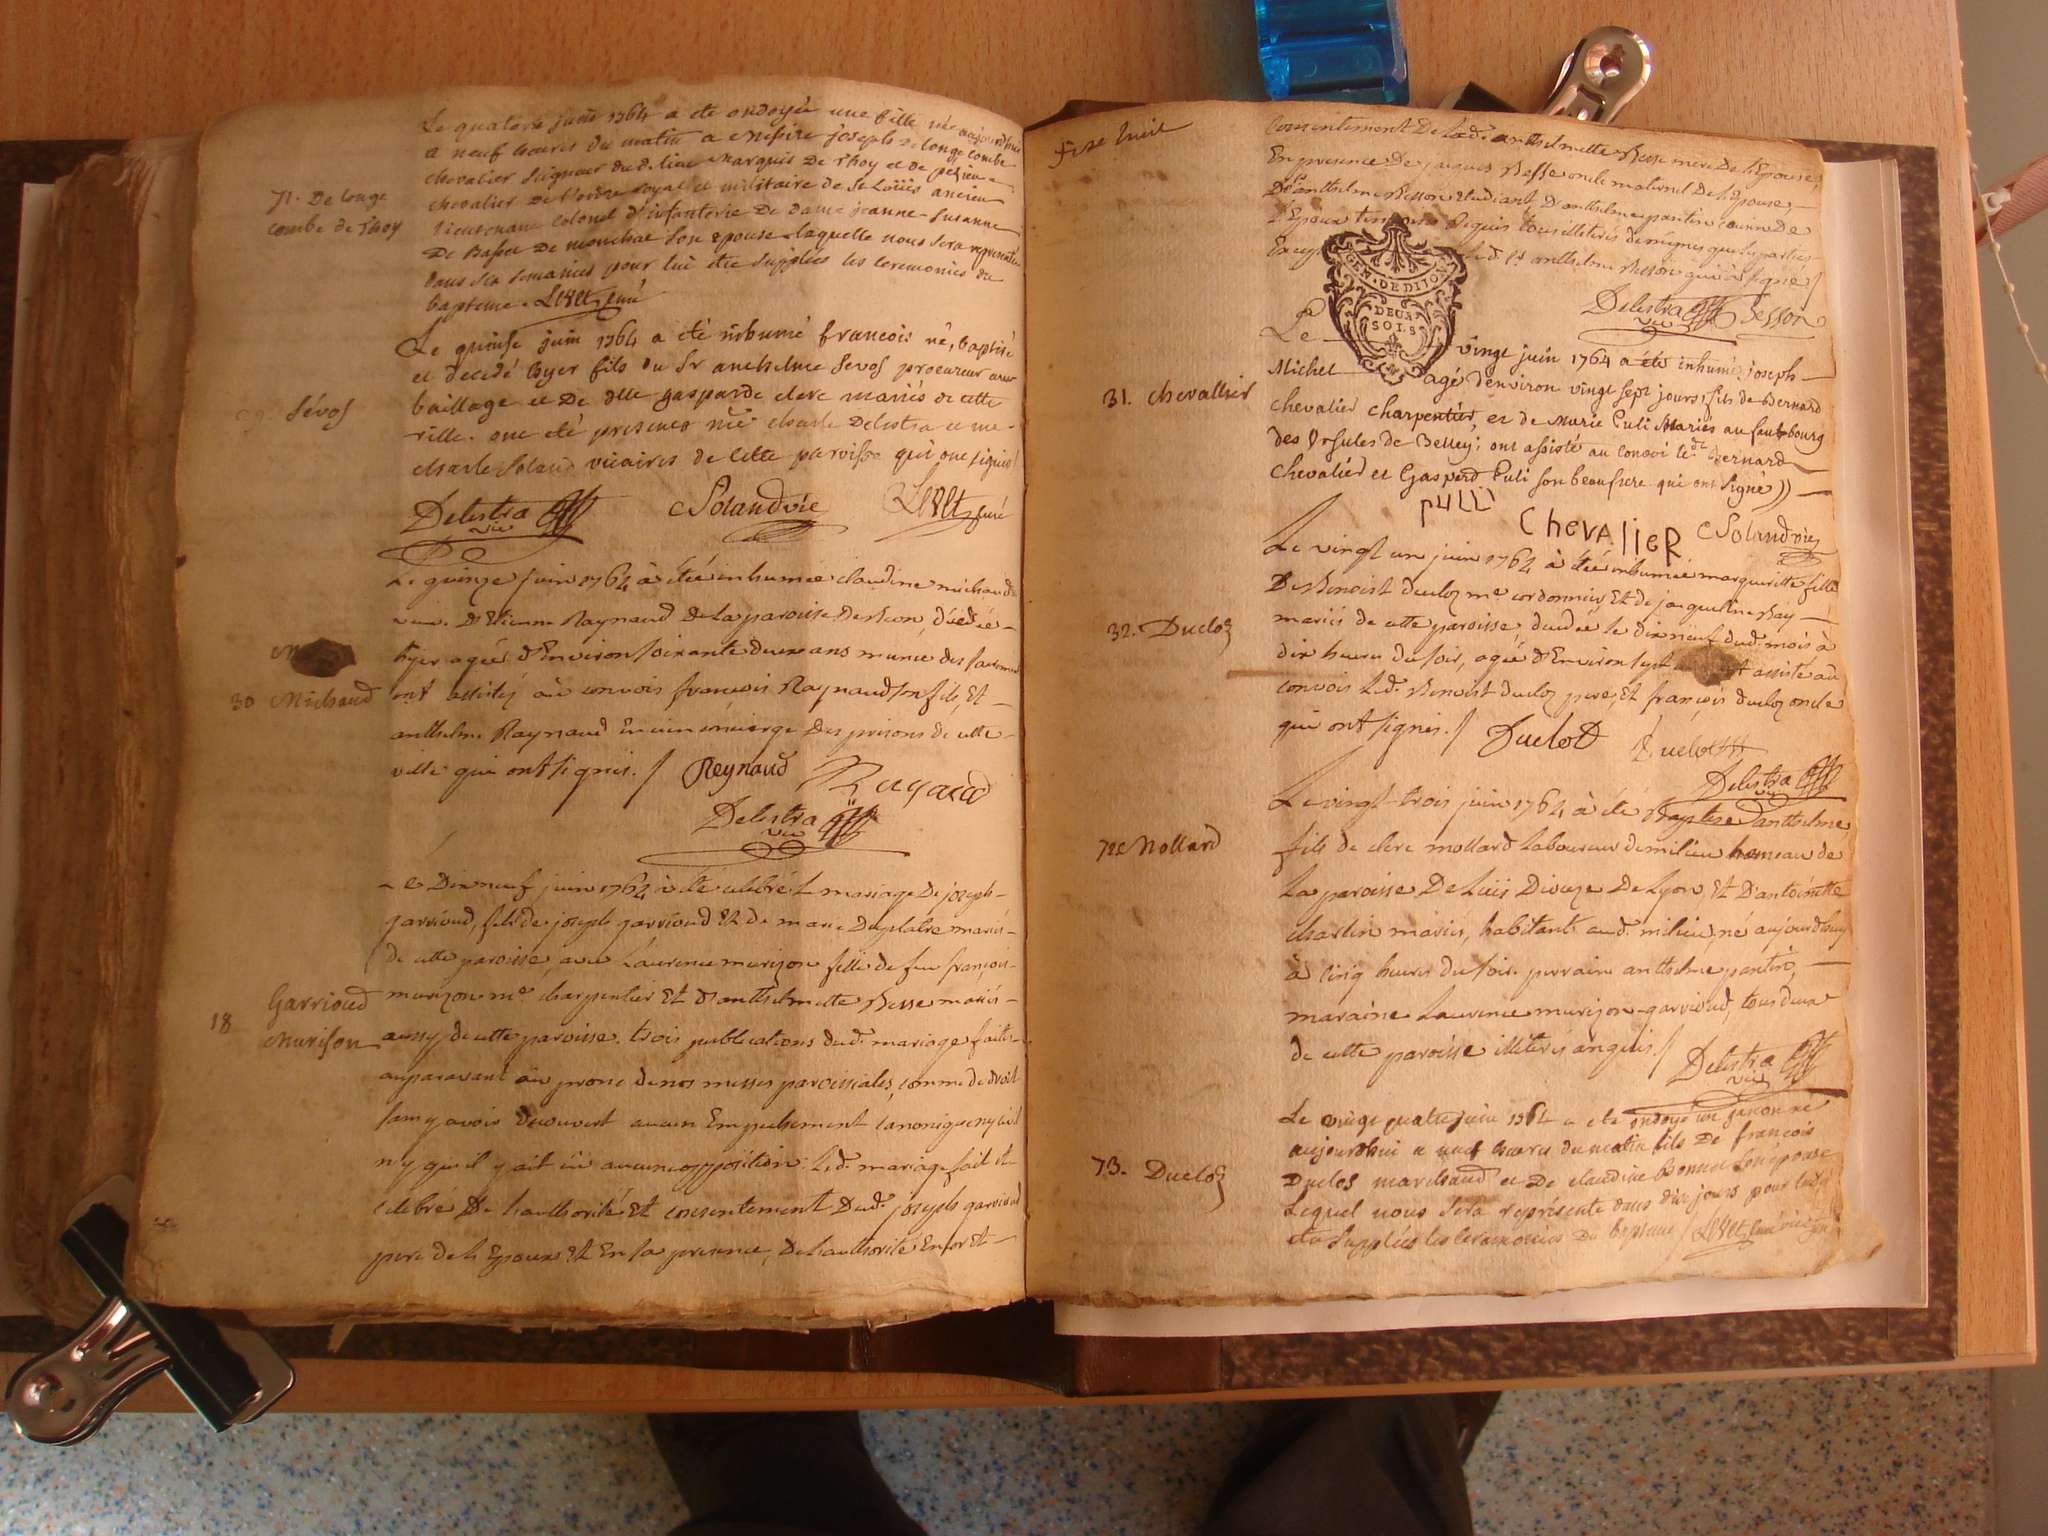 71. De longe
combe de Thoy
Le quatorze juin 1764 a ete ondoyée une fille née aujourdhui
a neuf heures du matin a Messire joseph de longecombe
chevalier seigneur dud. lieu Marquis De Thoy et de pezieu
chevalier de l'ordre royal et militaire de St Loüis ancien
Lieutenant colonel d'infanterie De dame jeanne-Susanne
De Basset De monchat son epouse laquelle nous sera representée
dans six semaines pour lui etre supplées les ceremonies du
bapteme. curé
29. Sévos
Le quinse juin 1764 a été inhumé francois né, baptisé
et decedé hyer fils du Sr anthelme Sevos procureur au
baillage et De dlle gasparde clerc mariés de cette
ville. ont été presents Mre charle Delestra et me
charle Soland vicaires de cette paroisse qui ont signé
Delestra vic Soland vic curé
30 Michaud
Le quinze juin 1764 à été inhumée claudine michaud
veuve D'Etienne Raynaud De la paroisse de , décédée
hyer agée d'Environ soixante douze ans munie des sacrements
ont assistés au convois françois Raynaud son fils, Et
anthelme Raynaud concierge des prisons de cette
ville qui ont signés. / Reynaud
Delestra vic
18 Garrioud
Murison
Le Dix neuf juin 1764 à été celebré le mariage De joseph
garrioud, fils de joseph garrioud Et de marie mariés
de cette paroisse, avec Laurence murizon fille de feu françois
murizon me charpentier Et d'anthelmette Besse mariés
aussy de cette paroisse. trois publications dud. mariage faites
auparavant au prone de nos messes paroissiales, comme de droit
sans y avoir decouvert aucun Empechement canonique ny civil
ny qu'il y ait eü aucune opposition. Led. mariage fait et
celebré De l'authorité Et consentement Dud. joseph garrioud
pere de l'Epoux Et En sa presence, De l'authorité Et
consentement De lad. anthelmette Besse mere de l'Epouse,
En presence De jacques Besse oncle maternel de l'Epouse
De anthelme Besson etudiant, D'anthelme pantin
l'Epoux requis tous illiterés de même que les parties
led. Sr anthelme Besson qui à signé /
GEN. DE DIJON
DEUX
SOLS
Delestra vic Besson
31. chevallier
Le vingt juin 1764 a été inhumé joseph
Michel agé denviron vingt sept jours, fils de Bernard
chevalier charpentier, et de Marie Puli Mariés au fauxbourg
des Vrsules de Belley; ont assisté au convoi led. Bernard
chevalier et Gasperd Puli son beaufrere qui ont signé
pulli CHEVALIER Soland vic
32. Ducloz
Le vingt un juin 1764 à été inhumée marguerite fille
De Benoist ducloz me cordonnier Et de jacqueline Ray
mariés de cette paroisse, decedée le dix neuf dud. mois à
dix heures du soir, agée d'Environ sept assisté au
convois led. Benoist ducloz pere, Et françois ducloz oncle
qui ont signés. / Duclot Duclot
Delestra vic
72 Mollard
Le vingt-trois juin 1764 à été Baptisé anthelme,
fils de clerc mollard Laboureur de milieu hameau de
La paroisse De Diocèze De Lyon, Et D'antoinette
charlin mariés, habitants aud. milieu, né aujourdhuy
à cinq heures du soir. parrain anthelme pantin,
maraine Laurence murizon garrioud, tous deux
de cette paroisse illiterés enquis. /
Delestra vic
73. Ducloz
Le vingt quatre juin 1764 a ete ondoyé un garcon né
aujourdhui a neuf heures du matin fils De françois
Duclos marchand et De claudine Bonnet son epouse
Lequel nous sera représenté dans dix jours pour lui
etre supplées les ceremonies du bapteme / curé